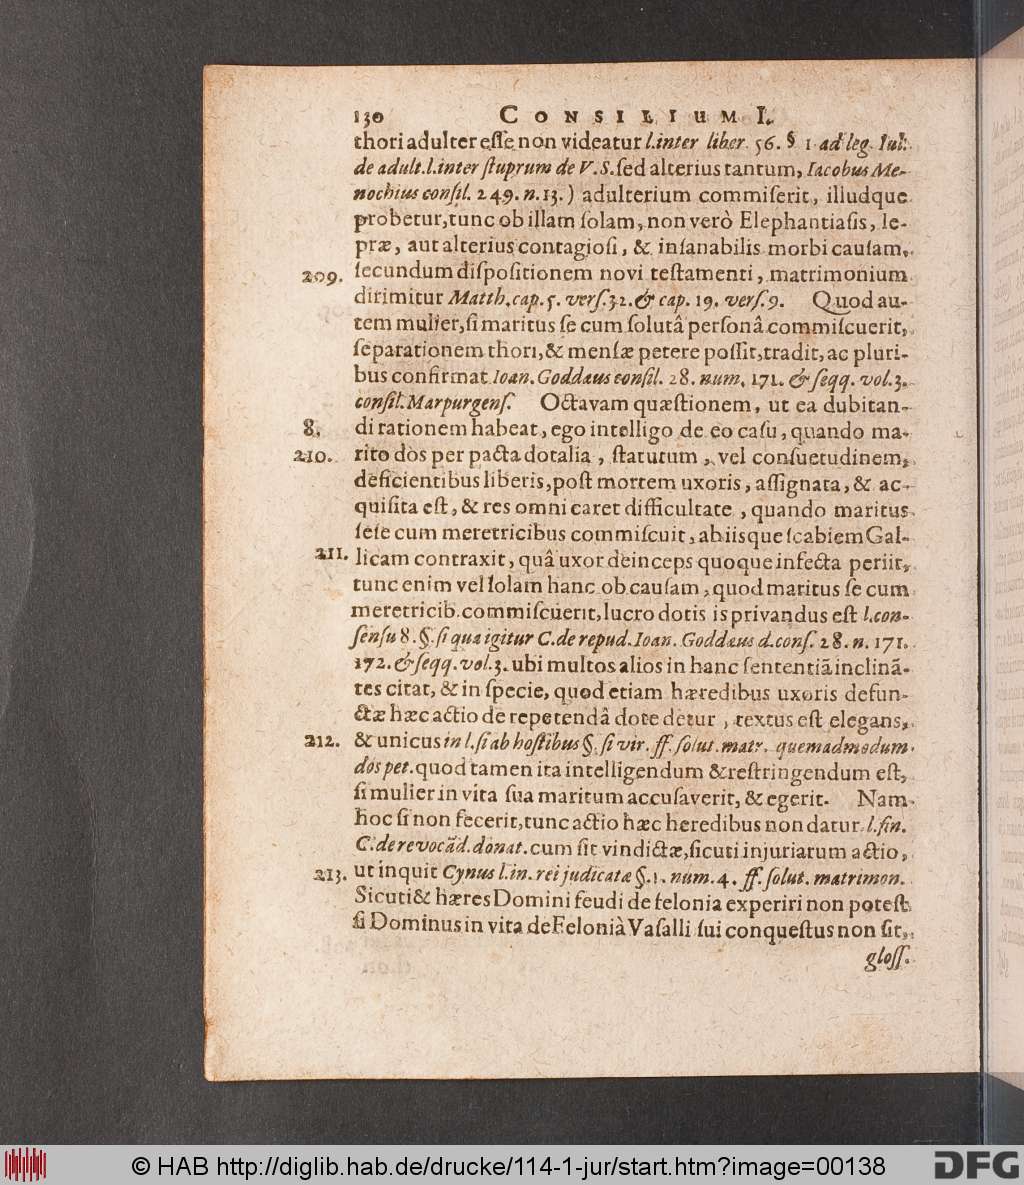 130 CONSILIUM I.
thori adulter esse non videatur l. inter liber. 56. § 1 ad leg. Iul.
de adult. l. inter stuprum de V. S. sed alterius tantum, Iacobus Me-
nochius consil. 249. n. 13. ) adulterium commiserit, illudque
probetur, tunc ob illam solam, non verò Elephantiasis, le-
præ, aut alterius contagiosi, & insanabilis morbi causam,
209. secundum dispositionem novi testamenti, matrimonium
dirimitur Matth. cap. 5. vers. 32. & cap. 19. vers. 9. Quod au-
tem mulier, si maritus se cum solutâ personâ commiscuerit,
separationem thori, & mensæ petere possit, tradit, ac pluri-
bus confirmat Ioan. Goddæus consil. 28. num. 171. & seqq. vol. 3.
consil. Marpurgens. Octavam quæstionem, ut ea dubitan-
8. di rationem habeat, ego intelligo de eo casu, quando ma-
210. rito dos per pacta dotalia, statutum, vel consuetudinem,
deficientibus liberis, post mortem uxoris, assignata, & ac-
quisita est, & res omni caret difficultate, quando maritus
sese cum meretricibus commiscuit, ab iisque scabiem Gal-
211. licam contraxit, quâ uxor deinceps quoque infecta periit,
tunc enim vel solam hanc ob causam, quod maritus se cum
meretricib. commiscuerit, lucro dotis is privandus est l. con-
sensu 8. §. si qua igitur C. de repud. Ioan. Goddæus d. cons. 28. n. 171.
172. & seqq. vol. 3. ubi multos alios in hanc sententiã inclinã-
tes citat, & in specie, quod etiam hæredibus uxoris defun-
ctæ hæc actio de repetendâ dote detur, textus est elegans,
212. & unicus in l. si ab hostibus §. si vir. ff. solut. matr. quemadmodum
dos pet. quod tamen ita intelligendum & restringendum est,
si mulier in vita sua maritum accusaverit, & egerit. Nam
hoc si non fecerit, tunc actio hæc heredibus non datur l. fin.
C. de revocãd. donat. cum sit vindictæ, sicuti injuriarum actio,
213. ut inquit Cynus l. in. rei judicatæ §. 1. num. 4. ff. solut. matrimon.
Sicuti & hæres Domini feudi de felonia experiri non potest
si Dominus in vita de Felonià Vasalli sui conquestus non sit,
gloss.
© HAB http://diglib.hab.de/drucke/114-1-jur/start.htm?image=00138
DFG